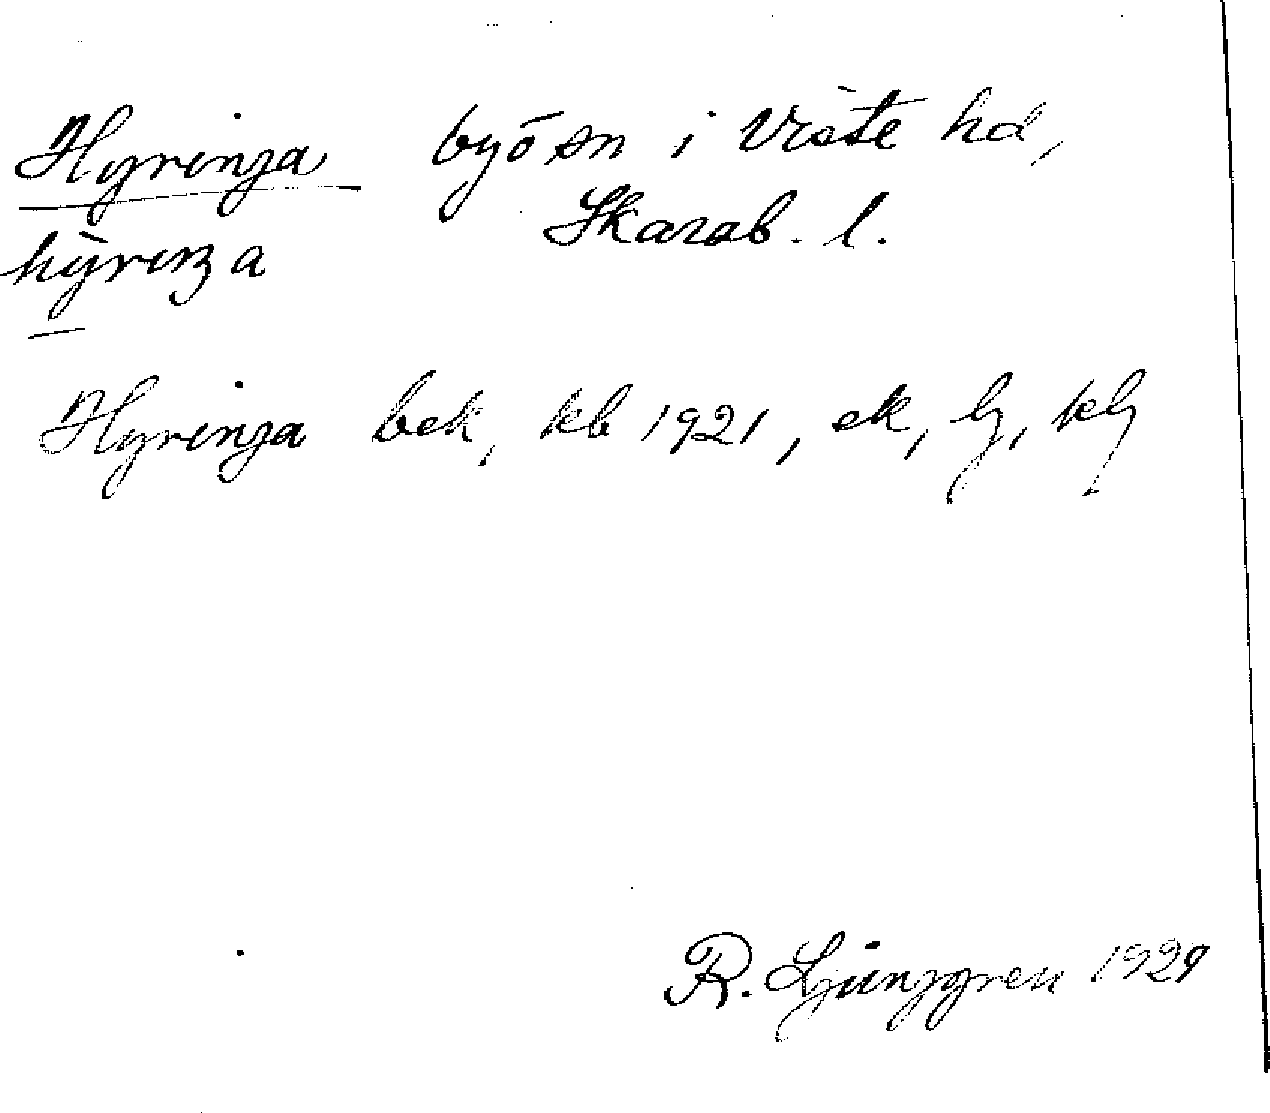 Hyringa by ō sn i Viste hd,
hỳriŋa Skarab. l.
Hyringa bek, kb 1921, ek, lj, klj
R. Ljunggren 1929